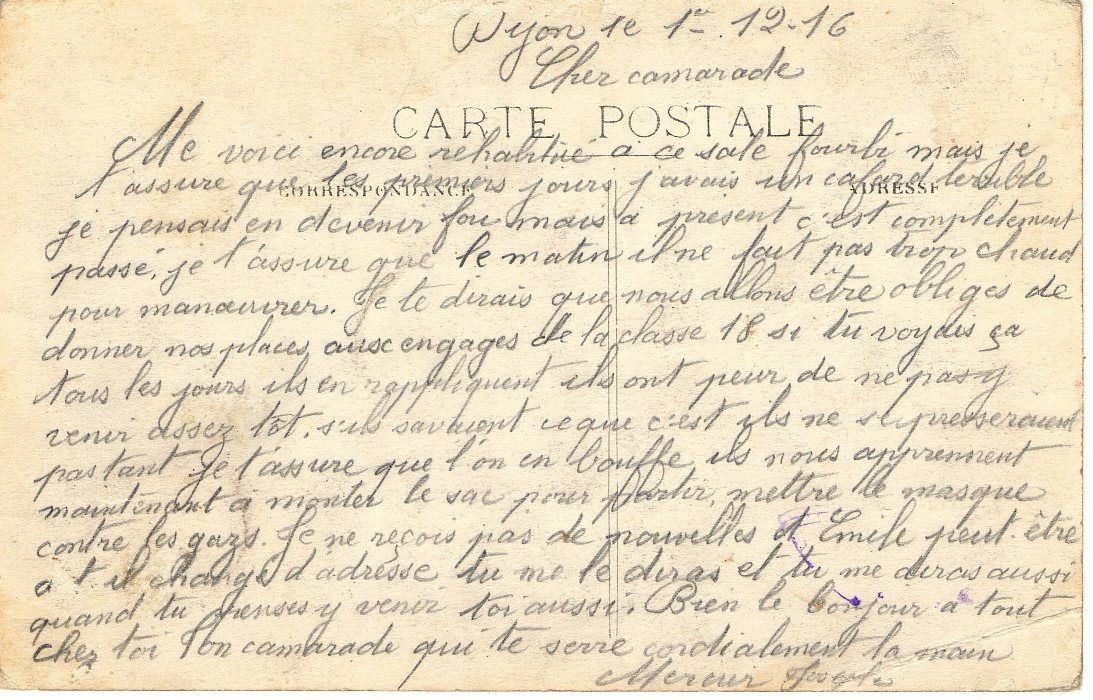 Dijon le 1er 12-16
Cher camarade
CARTE POSTALE
Me voici encore rehabitué à ce sale fourbi mais je
CORRESPONDANCE
ADRESSE
t'assure que les premiers jours j'avais un cafard terrible
je pensais en devenir fou mais a present c'est completement
passé, je t'assure que le matin il ne fait pas trop chaud
pour manœuvrer. Je te dirais que nous allons être obliges de
donner nos places aux engages de la classe 18 si tu voyais ça
tous les jours ils en rappliquent ils ont peur de ne pas y
venir assez tôt, s'ils savaient ce que c'est ils ne se presseraient
pas tant Je t'assure que l'on en bouffe ils nous apprennent
maintenant a monter le sac pour partir, mettre le masque
contre les gazs. Je ne reçois pas de nouvelles d Emile peut-être
a t il changé d'adrèsse tu me le diras et tu me diras aussi
quand tu penses y venir toi aussi. Bien le bonjour a tout
chez toi Ton camarade qui te serre cordialement la main
Joseph